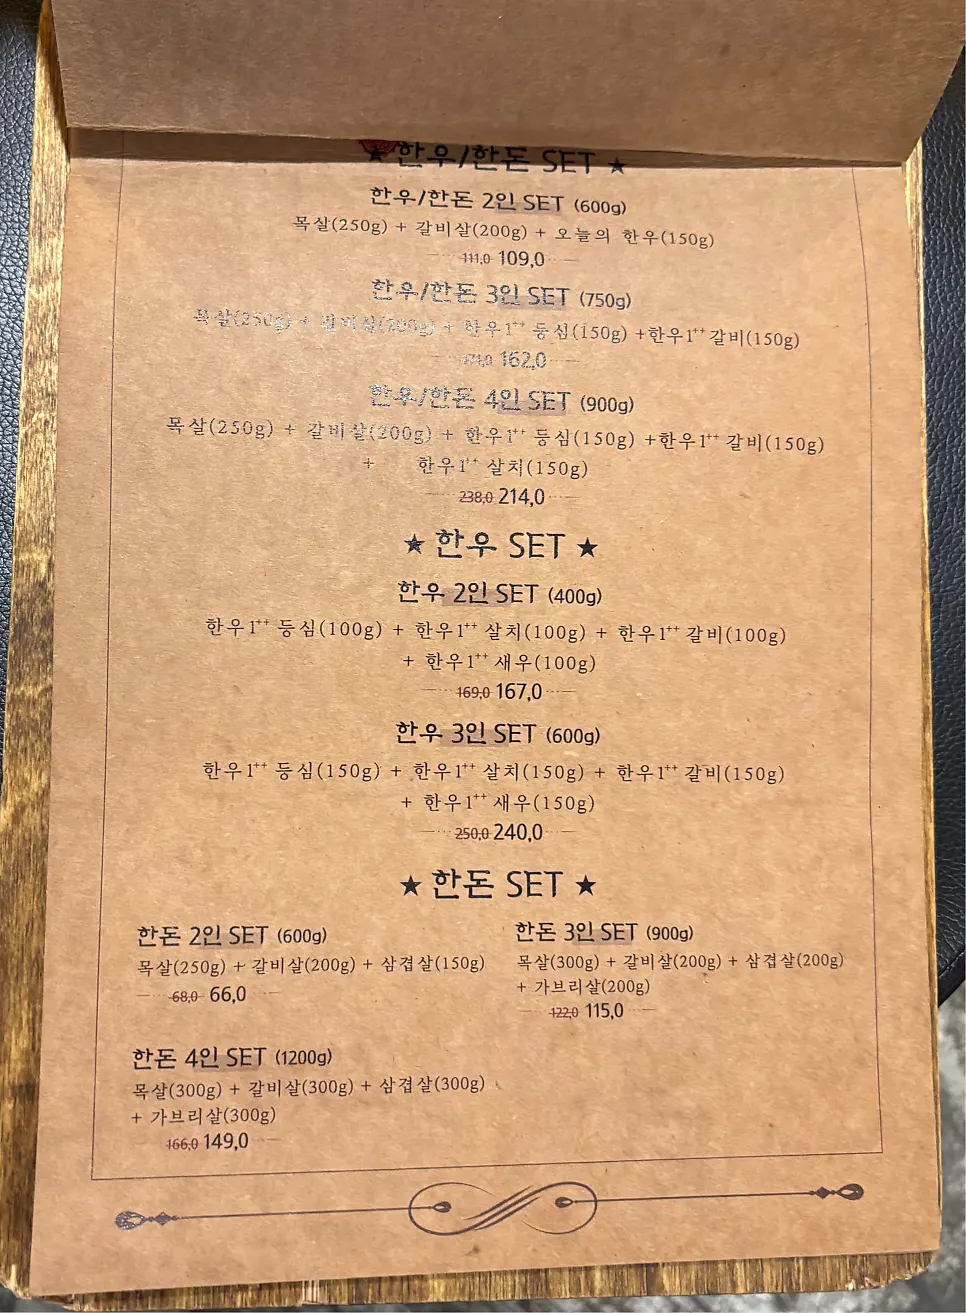 ★ 한우/한돈 SET ★
한우/한돈 2인 SET (600g)
목살(250g) + 갈비살(200g) + 오늘의 한우(150g)
111,0 109,0
한우/한돈 3인 SET (750g)
목살(250g) + 갈비살(200g) + 한우1⁺⁺ 등심(150g) +한우1⁺⁺ 갈비(150g)
162,0
한우/한돈 4인 SET (900g)
목살(250g) + 갈비살(200g) + 한우1⁺⁺ 등심(150g) +한우1⁺⁺ 갈비(150g)
+ 한우1⁺⁺ 살치(150g)
238,0 214,0
★ 한우 SET ★
한우 2인 SET (400g)
한우1⁺⁺ 등심(100g) + 한우1⁺⁺ 살치(100g) + 한우1⁺⁺ 갈비(100g)
+ 한우1⁺⁺ 새우(100g)
169,0 167,0
한우 3인 SET (600g)
한우1⁺⁺ 등심(150g) + 한우1⁺⁺ 살치(150g) + 한우1⁺⁺ 갈비(150g)
+ 한우1⁺⁺ 새우(150g)
250,0 240,0
★ 한돈 SET ★
한돈 2인 SET (600g)
목살(250g) + 갈비살(200g) + 삼겹살(150g)
68,0 66,0
한돈 3인 SET (900g)
목살(300g) + 갈비살(200g) + 삼겹살(200g)
+ 가브리살(200g)
122,0 115,0
한돈 4인 SET (1200g)
목살(300g) + 갈비살(300g) + 삼겹살(300g)
+ 가브리살(300g)
166,0 149,0